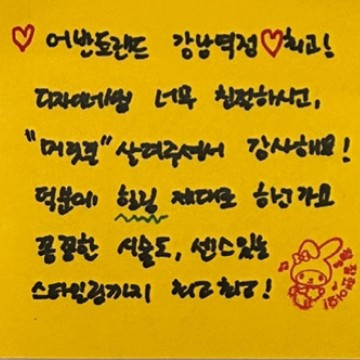 ♡ 어반트랜드 강남역점♡최고!
디자이너쌤 너무 친절하시고,
"머릿결" 살려주셔서 감사해요!
덕분에 힐링 제대로 하고가요
꼼꼼한 시술도, 센스있는
스타일링까지 최고최고!